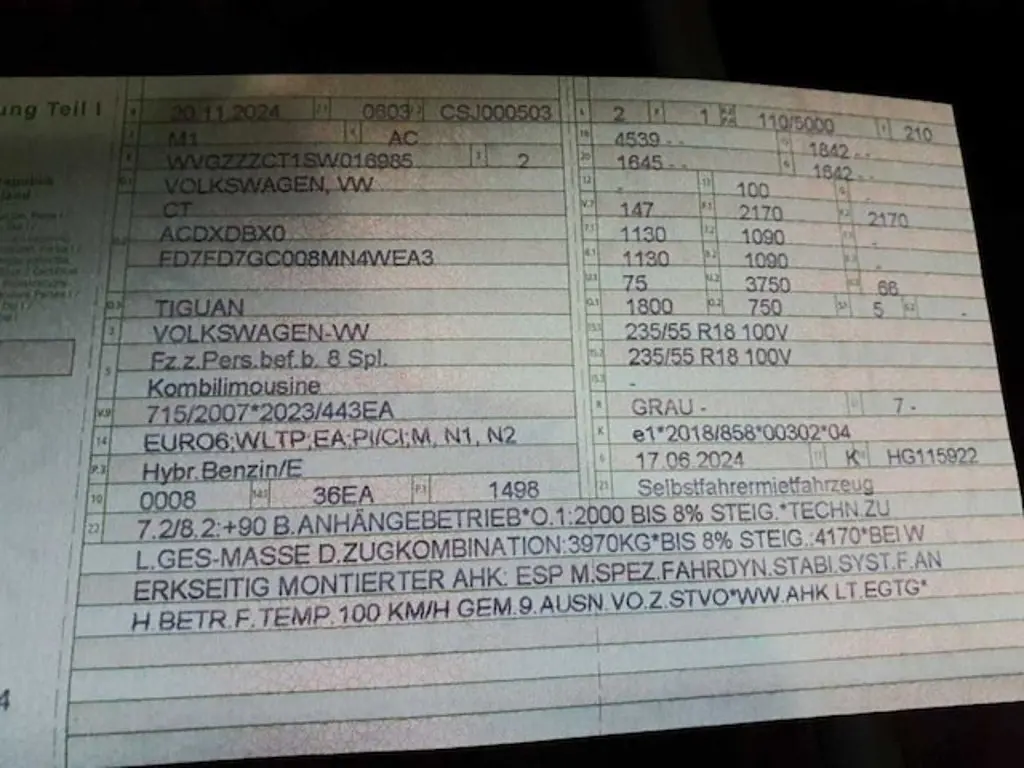 ung Teil I
20.11.2024 0603 CSJ000503
M1 AC
WVGZZZCT1SW016985 2
VOLKSWAGEN, VW
CT
ACDXDBX0
FD7FD7GC008MN4WEA3
TIGUAN
VOLKSWAGEN-VW
Fz.z.Pers.bef.b. 8 Spl.
Kombilimousine
715/2007*2023/443EA
EURO6;WLTP;EA;PI/CI;M, N1, N2
Hybr.Benzin/E
0008 36EA 1498
2 1 110/5000 210
4539 - - 1842 - -
1645 - - 1642 - -
- 100
147 2170 2170
1130 1090 -
1130 1090 -
75 3750 66
1800 750 5 -
235/55 R18 100V
235/55 R18 100V
-
GRAU - 7 -
e1*2018/858*00302*04
17.06.2024 K HG115922
Selbstfahrermietfahrzeug
7.2/8.2:+90 B.ANHÄNGEBETRIEB*O.1:2000 BIS 8% STEIG.*TECHN.ZU
L.GES-MASSE D.ZUGKOMBINATION:3970KG*BIS 8% STEIG.:4170*BEI W
ERKSEITIG MONTIERTER AHK: ESP M.SPEZ.FAHRDYN.STABI.SYST.F.AN
H.BETR.F.TEMP.100 KM/H GEM.9.AUSN.VO.Z.STVO*WW.AHK LT.EGTG*
4